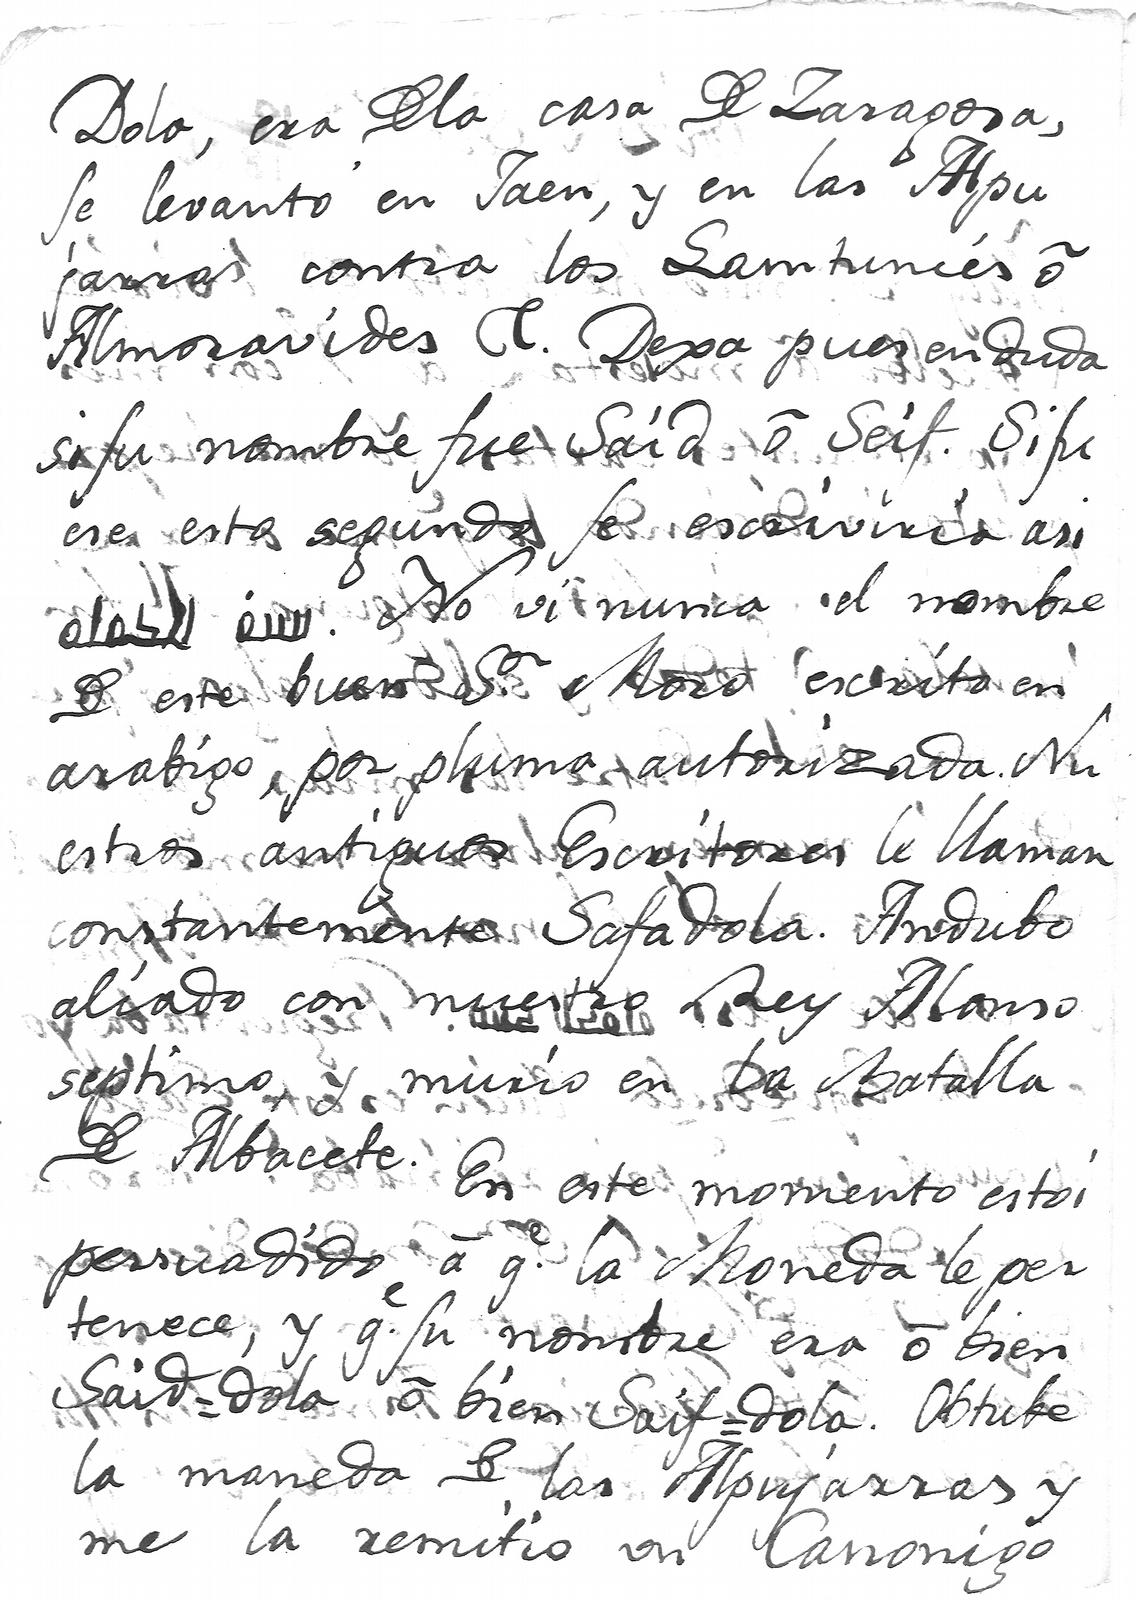 Dola, era Dela casa De Zaragosa,
se levantó en Jaen, y en las Alpu
jarras contra los Lamtuniés ō
Almoravides &. Dexa pues en duda
si su nombre fue Said ō Seif. Si fu
ese esta segunda se escriviria asi
سيف الدولة. No vi nunca el nombre
De este buen Sor Moro escrito en
arabigo, por pluma autorizada. Nu
estros antiguos Escritores le llaman
constantemente Safadola. Andubo
aliado con nuestro Rey Alonso
septimo, y murio en la Batalla
De Albacete.
En este momento estoi
persuadido ā qe. la Moneda le per
tenece, y qe. su nombre era ō bien
Said=dola ō bien Saif=dola. Obtube
la moneda De las Alpujarras y
me la remitio un Canonigo